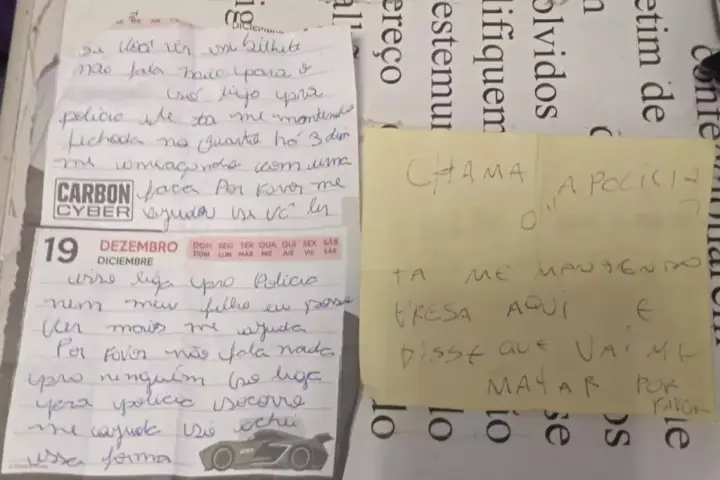 DICIEMBRE
se você ver um bilhete
não fala nada para o
só liga pra
policia ele ta me mantendo
fechada no quarto há 3 dias
me ameaçando com uma
faca Por Favor me
ajudar se vcˆ ler
CARBON
CYBER
19
DEZEMBRO
DICIEMBRE
DOM SEG TER QUA QUI SEX SÁB
DOM LUN MAR MIÉ JUE VIE SÁB
isso liga pra Policia
nem meu filho eu posso
ver mais me ajuda
Por Favor não fala nada
pra ninguém so liga
para policia socorro
me ajuda só achei
essa forma
CHAMA A POLICIA
O"
TA ME MANTENDO
PRESA AQUI E
DISSE QUE VAI ME
MATAR POR
FAVOR
ereço
estemu
lifiquem
olvidos
etim de